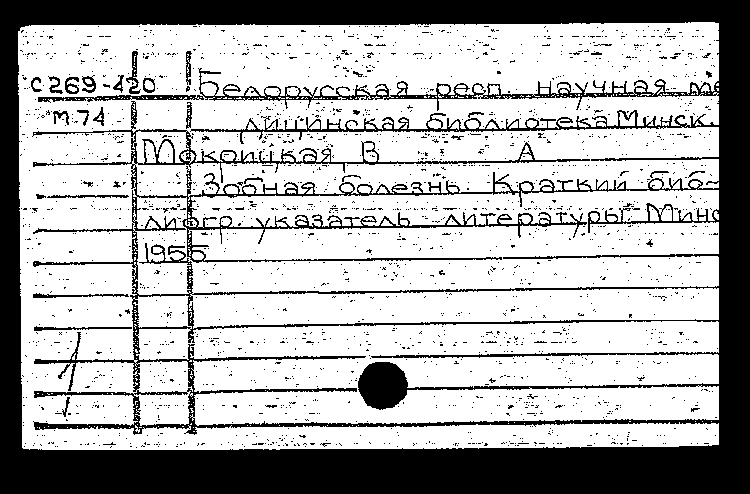 С269-420 Белорусская респ. научная ме
М74 дицинская библиотека Минск.
Мокрицкая, В А
Зобная болезнь. Краткий биб-
лиогр. указатель литературы. Минс
1955
1